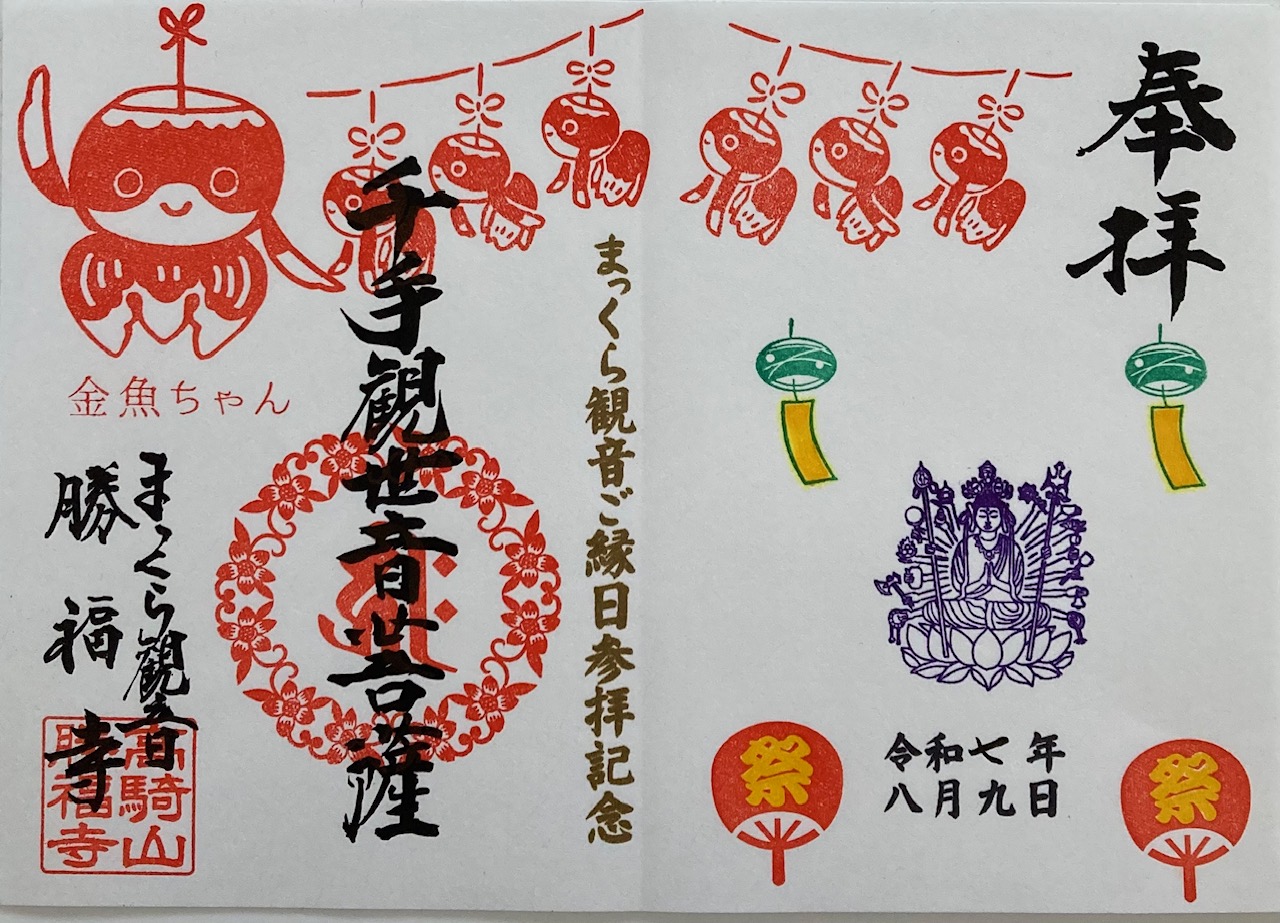 奉拝
祭
令和七年
八月九日
祭
まっくら観音ご縁日参拝記念
千手観世音菩薩
金魚ちゃん
まっくら観音
勝福寺
高騎山
勝福寺